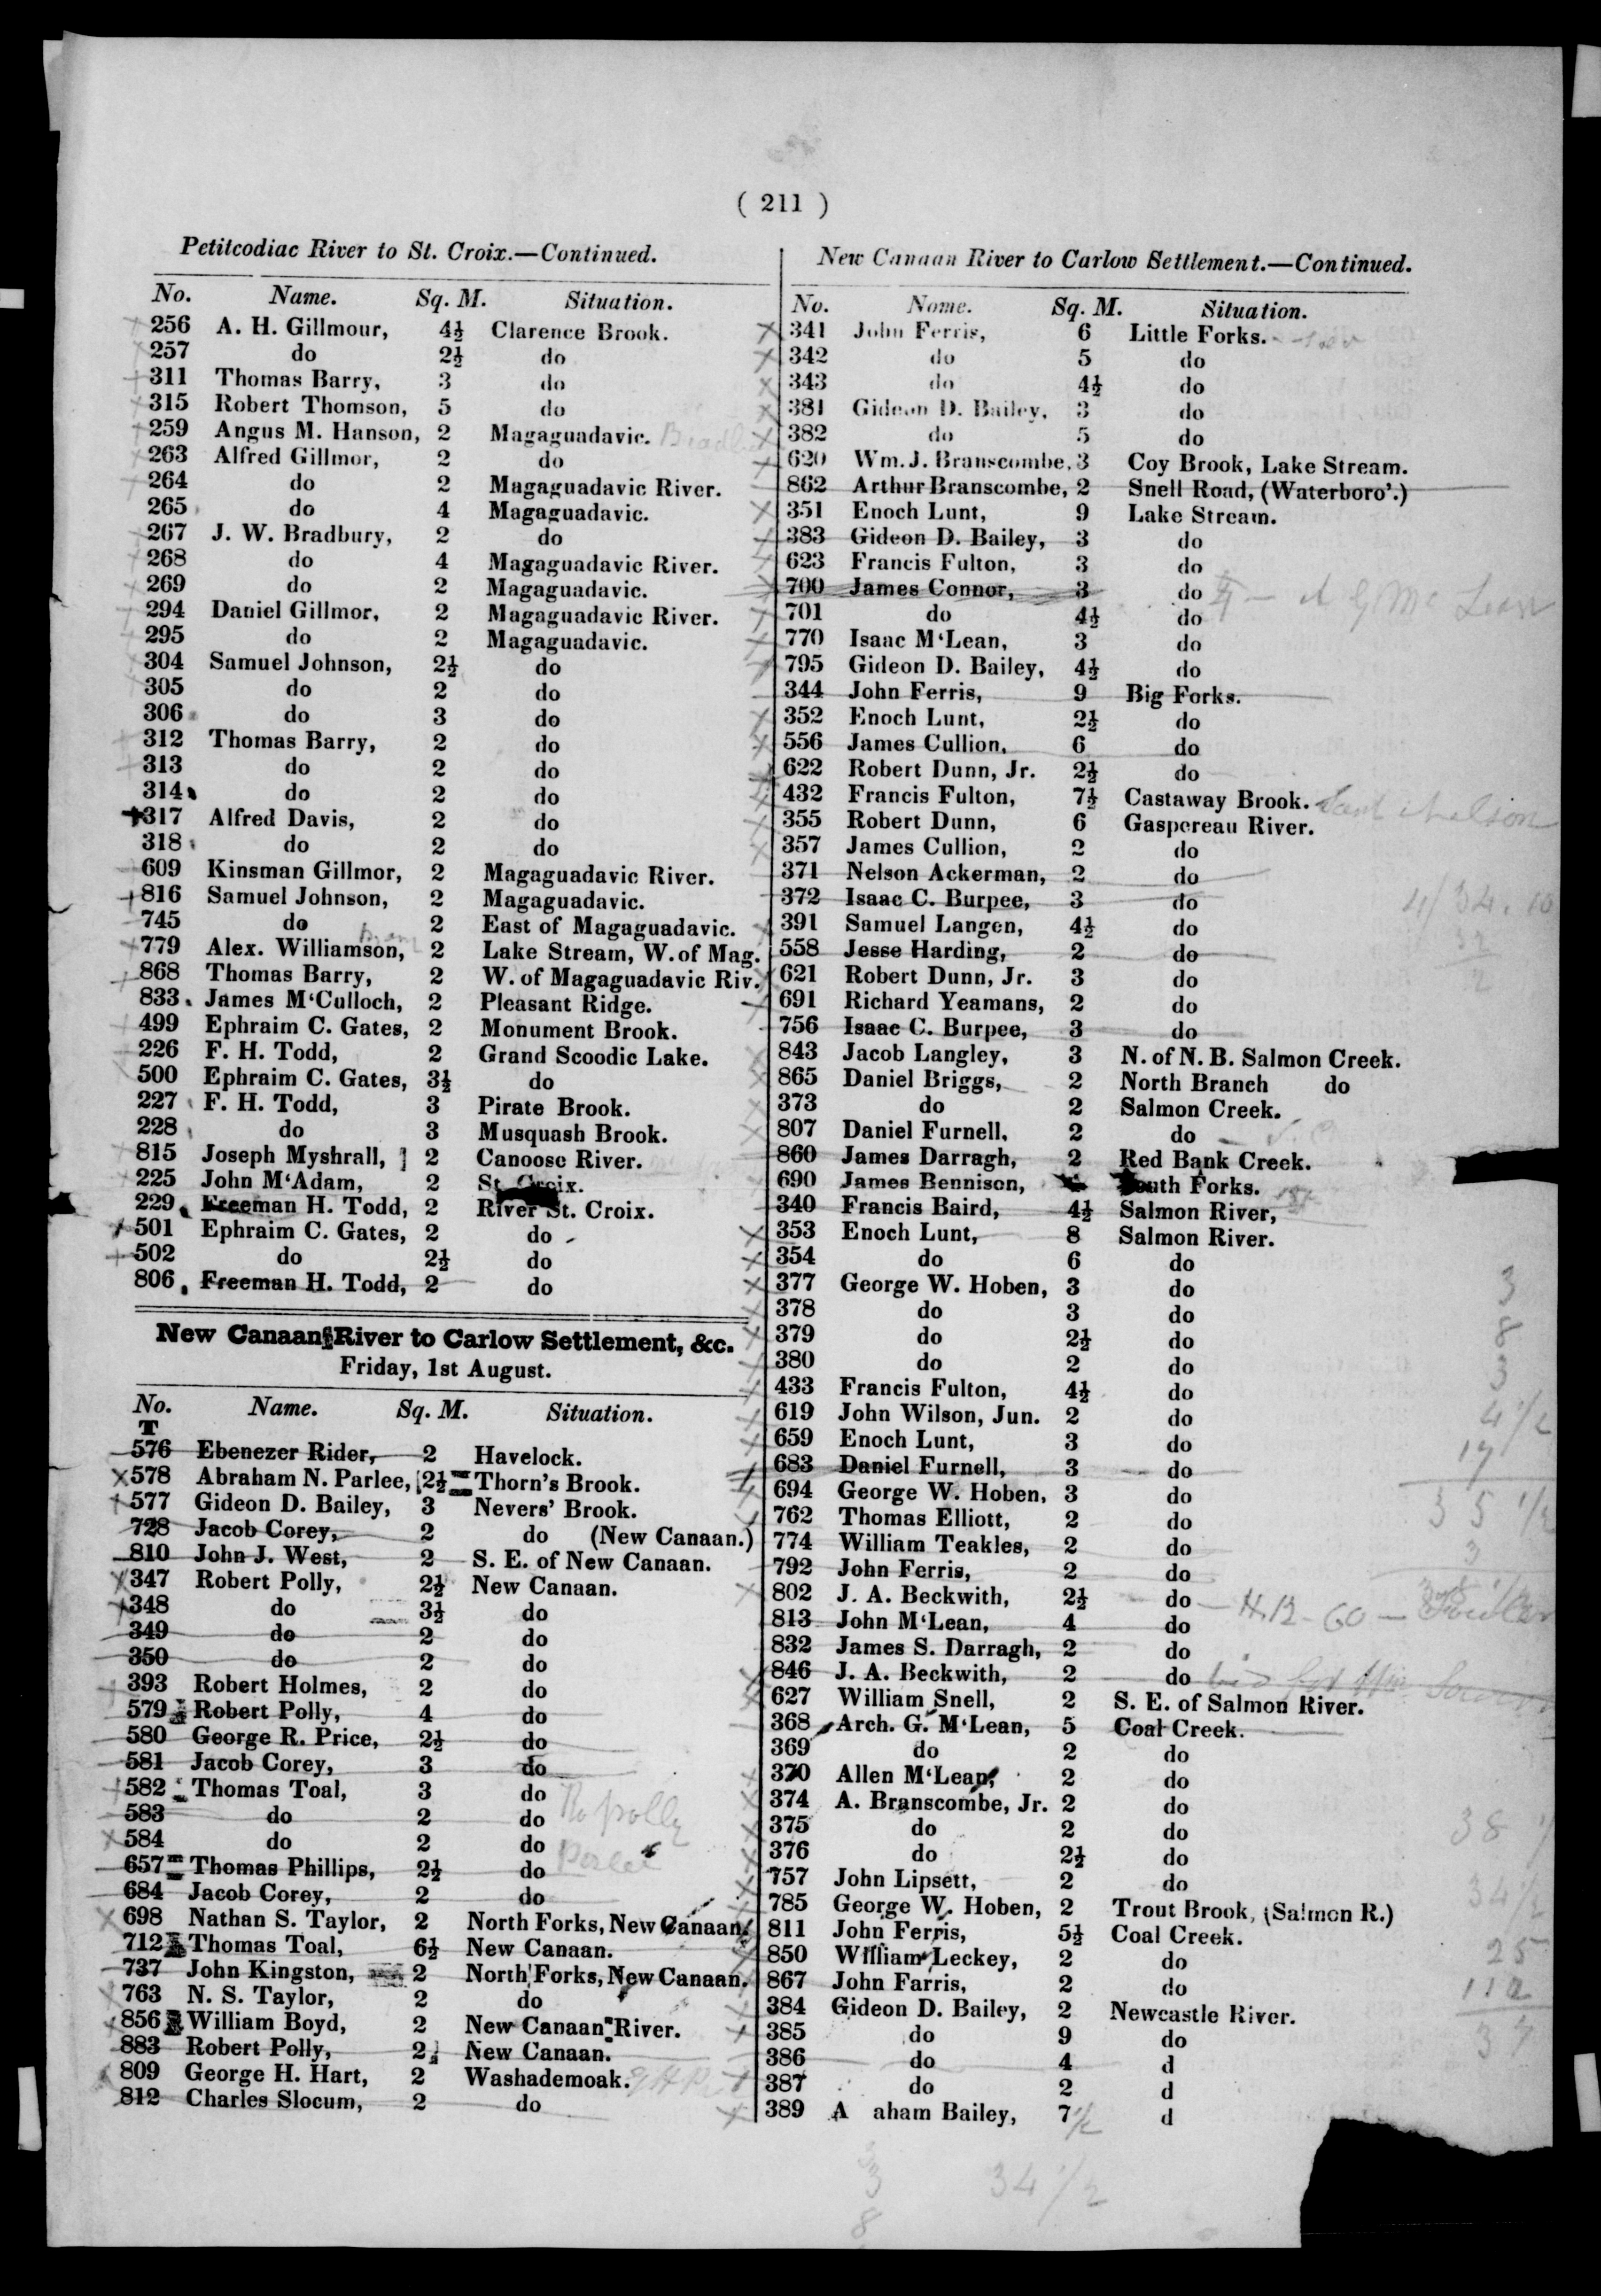 ( 211 )
Petitcodiac River to St. Croix.—Continued.
No. Name. Sq. M. Situation.
256 A. H. Gillmour, 4½ Clarence Brook.
257 do 2½ do
311 Thomas Barry, 3 do
315 Robert Thomson, 5 do
259 Angus M. Hanson, 2 Magaguadavic.
263 Alfred Gillmor, 2 do
264 do 2 Magaguadavic River.
265 do 4 Magaguadavic.
267 J. W. Bradbury, 2 do
268 do 4 Magaguadavic River.
269 do 2 Magaguadavic.
294 Daniel Gillmor, 2 Magaguadavic River.
295 do 2 Magaguadavic.
304 Samuel Johnson, 2½ do
305 do 2 do
306 do 3 do
312 Thomas Barry, 2 do
313 do 2 do
314 do 2 do
317 Alfred Davis, 2 do
318 do 2 do
609 Kinsman Gillmor, 2 Magaguadavic River.
816 Samuel Johnson, 2 Magaguadavic.
745 do 2 East of Magaguadavic.
779 Alex. Williamson, 2 Lake Stream, W. of Mag.
868 Thomas Barry, 2 W. of Magaguadavic Riv.
833 James M'Culloch, 2 Pleasant Ridge.
499 Ephraim C. Gates, 2 Monument Brook.
226 F. H. Todd, 2 Grand Scoodic Lake.
500 Ephraim C. Gates, 3½ do
227 F. H. Todd, 3 Pirate Brook.
228 do 3 Musquash Brook.
815 Joseph Myshrall, 2 Canoose River.
225 John M'Adam, 2 St. Croix.
229 Freeman H. Todd, 2 River St. Croix.
501 Ephraim C. Gates, 2 do
502 do 2½ do
806 Freeman H. Todd, 2 do
New Canaan River to Carlow Settlement, &c.
Friday, 1st August.
No. Name. Sq. M. Situation.
T
576 Ebenezer Rider, 2 Havelock.
578 Abraham N. Parlee, 2½ Thorn's Brook.
577 Gideon D. Bailey, 3 Nevers' Brook.
728 Jacob Corey, 2 do (New Canaan.)
810 John J. West, 2 S. E. of New Canaan.
347 Robert Polly, 2½ New Canaan.
348 do 3½ do
349 do 2 do
350 do 2 do
393 Robert Holmes, 2 do
579 Robert Polly, 4 do
580 George R. Price, 2½ do
581 Jacob Corey, 3 do
582 Thomas Toal, 3 do
583 do 2 do Ro polly
584 do 2 do
657 Thomas Phillips, 2½ do
684 Jacob Corey, 2 do
698 Nathan S. Taylor, 2 North Forks, New Canaan.
712 Thomas Toal, 6½ New Canaan.
737 John Kingston, 2 North Forks, New Canaan.
763 N. S. Taylor, 2 do
856 William Boyd, 2 New Canaan River.
883 Robert Polly, 2 New Canaan.
809 George H. Hart, 2 Washademoak.
812 Charles Slocum, 2 do
New Canaan River to Carlow Settlement.—Continued.
No. Nome. Sq. M. Situation.
341 John Ferris, 6 Little Forks.
342 do 5 do
343 do 4½ do
381 Gideon D. Bailey, 3 do
382 do 5 do
620 Wm. J. Branscombe, 3 Coy Brook, Lake Stream.
862 Arthur Branscombe, 2 Snell Road, (Waterboro'.)
351 Enoch Lunt, 9 Lake Stream.
383 Gideon D. Bailey, 3 do
623 Francis Fulton, 3 do
700 James Connor, 3 do
701 do 4½ do
770 Isaac M'Lean, 3 do
795 Gideon D. Bailey, 4½ do
344 John Ferris, 9 Big Forks.
352 Enoch Lunt, 2½ do
556 James Cullion, 6 do
622 Robert Dunn, Jr. 2½ do
432 Francis Fulton, 7½ Castaway Brook.
355 Robert Dunn, 6 Gaspereau River.
357 James Cullion, 2 do
371 Nelson Ackerman, 2 do
372 Isaac C. Burpee, 3 do
391 Samuel Langen, 4½ do
558 Jesse Harding, 2 do
621 Robert Dunn, Jr. 3 do
691 Richard Yeamans, 2 do
756 Isaac C. Burpee, 3 do
843 Jacob Langley, 3 N. of N. B. Salmon Creek.
865 Daniel Briggs, 2 North Branch do
373 do 2 Salmon Creek.
807 Daniel Furnell, 2 do
860 James Darragh, 2 Red Bank Creek.
690 James Bennison, South Forks.
340 Francis Baird, 4½ Salmon River,
353 Enoch Lunt, 8 Salmon River.
354 do 6 do
377 George W. Hoben, 3 do
378 do 3 do
379 do 2½ do
380 do 2 do
433 Francis Fulton, 4½ do
619 John Wilson, Jun. 2 do
659 Enoch Lunt, 3 do
683 Daniel Furnell, 3 do
694 George W. Hoben, 3 do
762 Thomas Elliott, 2 do
774 William Teakles, 2 do
792 John Ferris, 2 do
802 J. A. Beckwith, 2½ do
813 John M'Lean, 4 do
832 James S. Darragh, 2 do
846 J. A. Beckwith, 2 do
627 William Snell, 2 S. E. of Salmon River.
368 Arch. G. M'Lean, 5 Coal Creek.
369 do 2 do
370 Allen M'Lean, 2 do
374 A. Branscombe, Jr. 2 do
375 do 2 do
376 do 2½ do
757 John Lipsett, 2 do
785 George W. Hoben, 2 Trout Brook, (Salmon R.)
811 John Ferris, 5½ Coal Creek.
850 William Leckey, 2 do
867 John Farris, 2 do
384 Gideon D. Bailey, 2 Newcastle River.
385 do 9 do
386 do 4 d
387 do 2 d
389 A aham Bailey, 7½ d
3
8
3
4 1/2
17
35 1/2
3
34 1/2
3
8